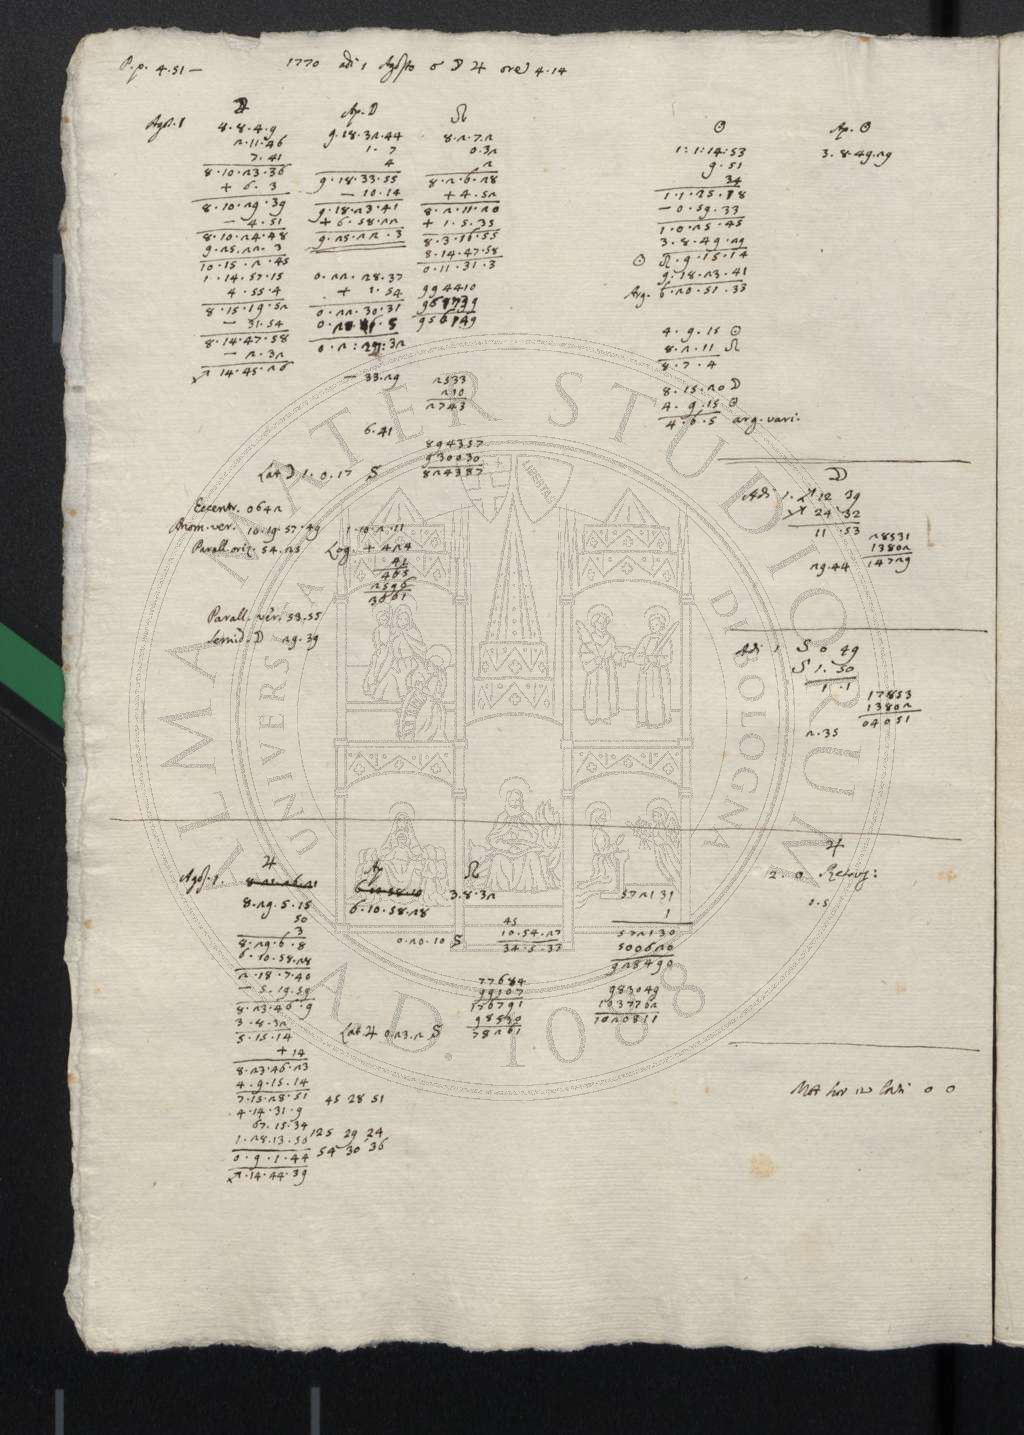 P.p. 4.51 — 1770 adi 1 Agosto ☌ ☽ ♃ ore 4.14
☽ Ap. ☽ ☊
Agos. 1
8.8.4.9
2.11.46
7.41
8.10.23.36
+ 6.3
8.10.29.39
— 4.51
8.10.24.48
9.25.22.3
10.15.2.45
1.14.57.15
4.55.4
8.15.19.52
— 31.54
8.14.47.58
— 2.32
♐ 14.45.26
9.18.32.44
1.7
4
9.18.33.55
— 10.14
9.18.23.41
+ 6.58.22
9.25.22.3
0.22.28.37
+ 1.54
0.22.30.31
0.2:29:32
— 33.29
6.41
8.2.7.2
0.32
2
8.2.6.28
+ 4.52
8.2.11.20
+ 1.5.35
8.3.16.55
8.14.47.58
0.11.31.3
994410
956149
2533
210
2743
894357
930030
824387
Lat ☽ 1.0.17 S
Eccentr. 0642
Anom. ver. 10.19.57.49 1.10.2.11
Parall. oriz. 54.23 Log. + 424
41
465
2596
3061
Parall. ver. 53.55
Semid. ☽ 29.39
☉ Ap. ☉
1:1:14:53
9.51
34
1.1.25.18
— 0.59.33
1.0.25.45
3.8.49.29
☉ ♌.9.15.14
9.18.23.41
Arg. 6.20.51.33
3.8.49.29
4.9.15 ☉
8.2.11 ☊
8.7.4
8.15.20 ☽
4.9.15 ☉
4.6.5 arg. vari.
☽
Adi 1. ♐ 12 39
♐ 24 32
11.53
28531
13802
14729
29.44
Adi 1 S 0 49
S 1.50
1.1
17853
13802
04051
2.35
♃ Ap ☊
Agos. 1.
8.29.5.15
50
3
8.29.6.8
6.10.58.28
2.18.7.40
— 5.19.59
8.23.46.9
3.8.32
5.15.14
+ 14
8.23.46.23
4.9.15.14
7.15.28.51
4.14.31.9
67.15.34
1.28.13.56
0.9.1.44
♐.14.44.39
6.10.58.28
3.8.32
0.20.10 S
45
10.54.27
34.5.33
77684
99107
176791
98530
78261
Lat ♃ 0.23.2 S
45 28 51
125 29 24
54 30 36
572131
1
572130
500620
928490
983049
1037762
1020811
♃
2.0 Retrog:
0.5
0 0